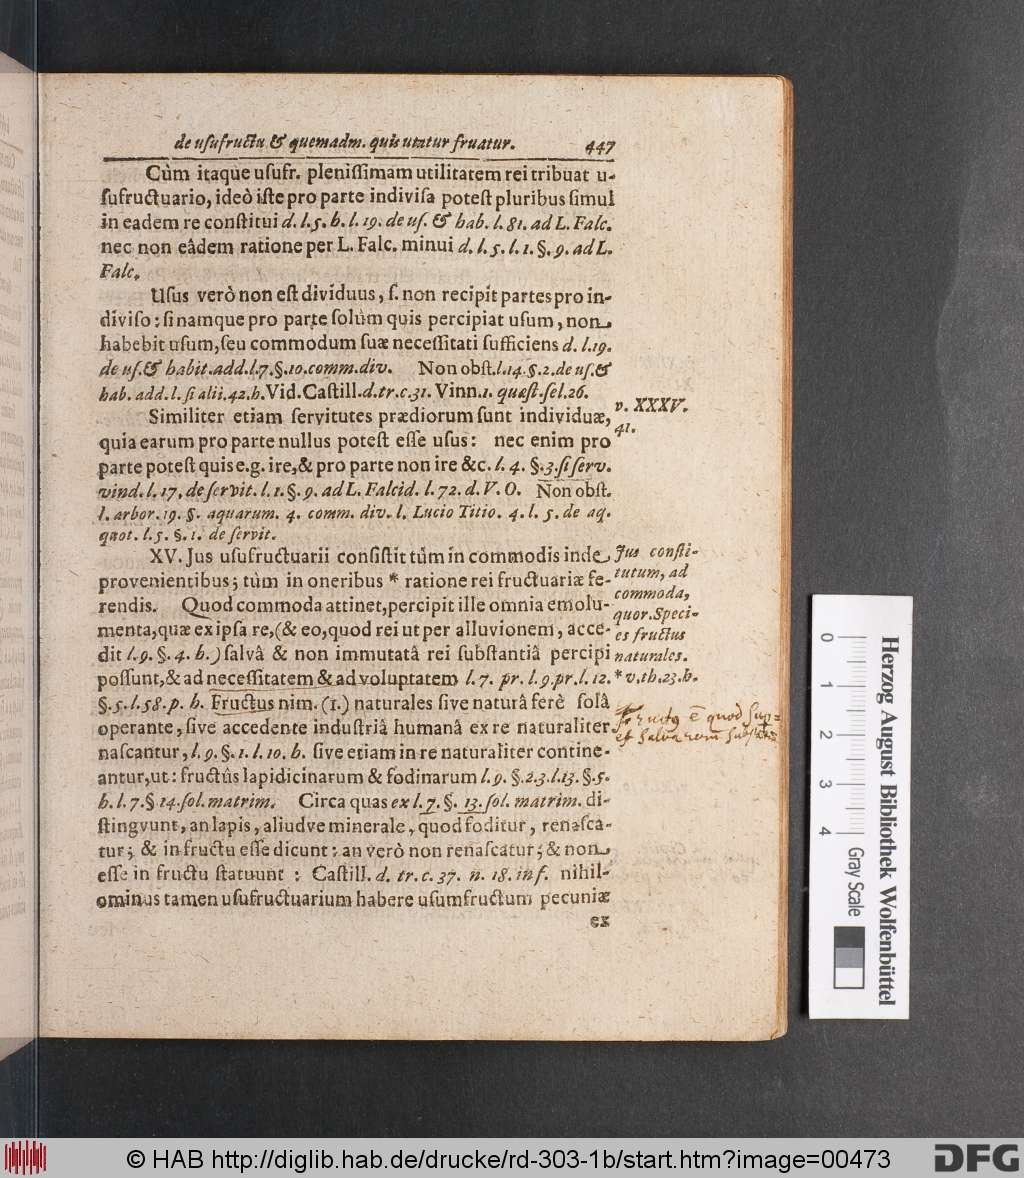 de uſufructu & quemadm. quis utatur fruatur. 447
Cùm itaque uſufr. pleniſſimam utilitatem rei tribuat u-
ſufructuario, ideò iſte pro parte indiviſa poteſt pluribus ſimul
in eadem re conſtitui d. l. 5. h. l. 19. de uſ. & hab. l. 81. ad L. Falc.
nec non eâdem ratione per L. Falc. minui d. l. 5. l. 1. §. 9. ad L.
Falc.
Uſus verò non eſt dividuus, ſ. non recipit partes pro in-
diviſo: ſi namque pro parte ſolùm quis percipiat uſum, non
habebit uſum, ſeu commodum ſuæ neceſſitati ſufficiens d. l. 19.
de uſ. & habit. add. l. 7. §. 10. comm. div. Non obſt. l. 14. §. 2. de uſ. &
hab. add. l. ſi alii. 42. h. Vid. Caſtill. d. tr. c. 31. Vinn. 1. quæſt. ſel. 26.
Similiter etiam ſervitutes prædiorum ſunt individuæ,
v. XXXV.
41.
quia earum pro parte nullus poteſt eſſe uſus: nec enim pro
parte poteſt quis e.g. ire, & pro parte non ire &c. l. 4. §. 3. ſi ſerv.
vind. l. 17. de ſervit. l. 1. §. 9. ad L. Falcid. l. 72. d. V. O. Non obſt.
l. arbor. 19. §. aquarum. 4. comm. div. l. Lucio Titio. 4. l. 5. de aq.
quot. l. 5. §. 1. de ſervit.
XV. Jus uſufructuarii conſiſtit tùm in commodis inde
provenientibus; tùm in oneribus * ratione rei fructuariæ fe-
rendis. Quod commoda attinet, percipit ille omnia emolu-
menta, quæ ex ipſa re, (& eo, quod rei ut per alluvionem, acce-
dit l. 9. §. 4. h.) ſalvâ & non immutatâ rei ſubſtantiâ percipi
poſſunt, & ad neceſſitatem & ad voluptatem l. 7. pr. l. 9. pr. l. 12.
§. 5. l. 58. p. h. Fructus nim. (1.) naturales ſive naturâ ferè ſolâ
operante, ſive accedente induſtriâ humanâ ex re naturaliter
naſcantur, l. 9. §. 1. l. 10. h. ſive etiam in re naturaliter contine-
antur, ut: fructûs lapidicinarum & fodinarum l. 9. §. 2. 3. l. 13. §. 5.
h. l. 7. § 14. ſol. matrim. Circa quas ex l. 7. §. 13. ſol. matrim. di-
ſtingvunt, an lapis, aliudve minerale, quod foditur, renaſca-
tur; & in fructu eſſe dicunt: an verò non renaſcatur; & non
eſſe in fructu ſtatuunt: Caſtill. d. tr. c. 37. n. 18. inf. nihil-
ominus tamen uſufructuarium habere uſumfructum pecuniæ
ex
Jus conſti-
tutum, ad
commoda,
quor. Speci-
es fructus
naturales.
* v. th. 23. h.
Herzog August Bibliothek Wolfenbüttel
0 1 2 3 4 Gray Scale
© HAB http://diglib.hab.de/drucke/rd-303-1b/start.htm?image=00473
DFG